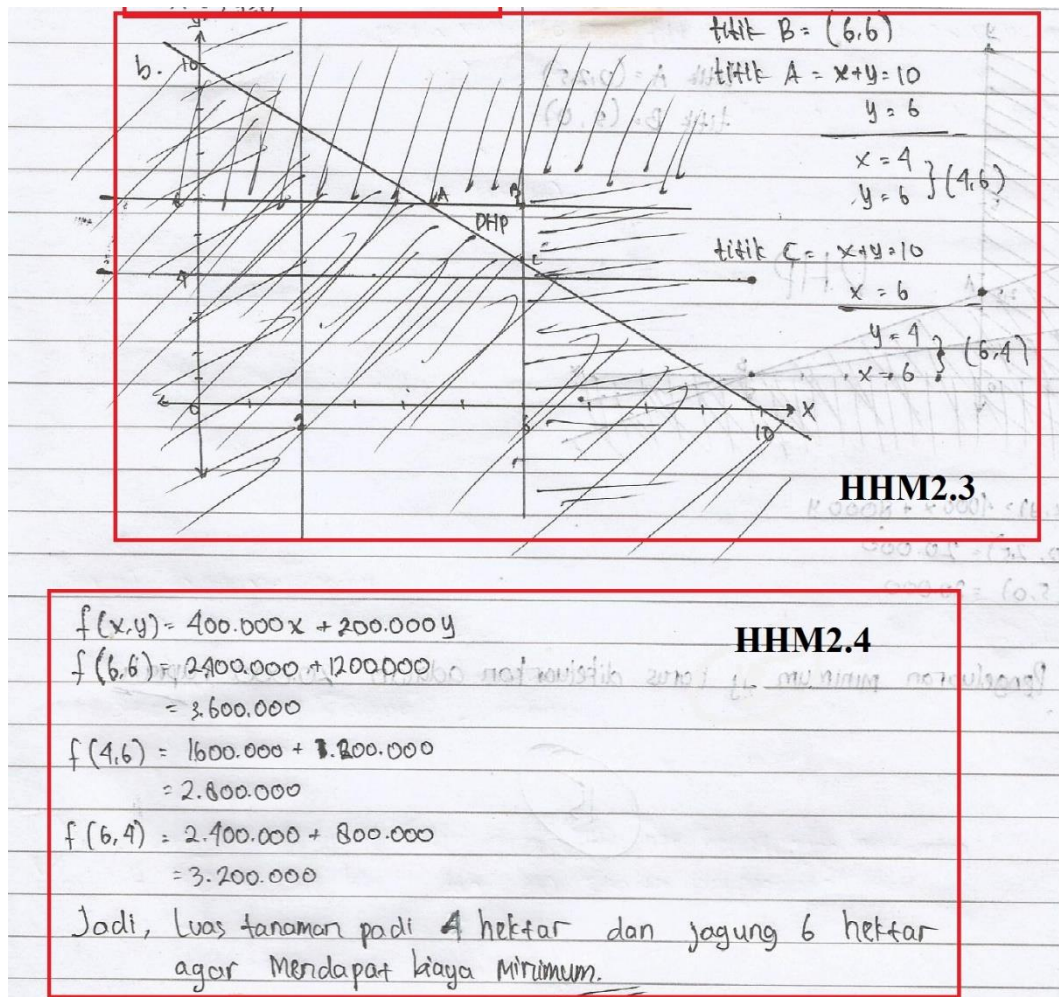 b.
y
10
A
B
DHP
C
4
0
2
6
10
X
titik B = (6,6)
titik A = x+y=10
y = 6
x = 4
y = 6 } (4,6)
titik C = x+y=10
x = 6
y = 4
x = 6 } (6,4)
HHM2.3
f(x,y) = 400.000x + 200.000y
HHM2.4
f(6,6) = 2.400.000 + 1200.000
= 3.600.000
f(4,6) = 1600.000 + 1.200.000
= 2.800.000
f(6,4) = 2.400.000 + 800.000
= 3.200.000
Jadi, Luas tanaman padi 4 hektar dan jagung 6 hektar
agar Mendapat biaya Minimum.